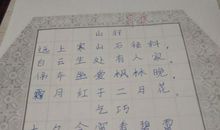 山行
远上寒山石径斜，
白云生处有人家。
停车坐爱枫林晚，
霜月红于二月花。
乞巧